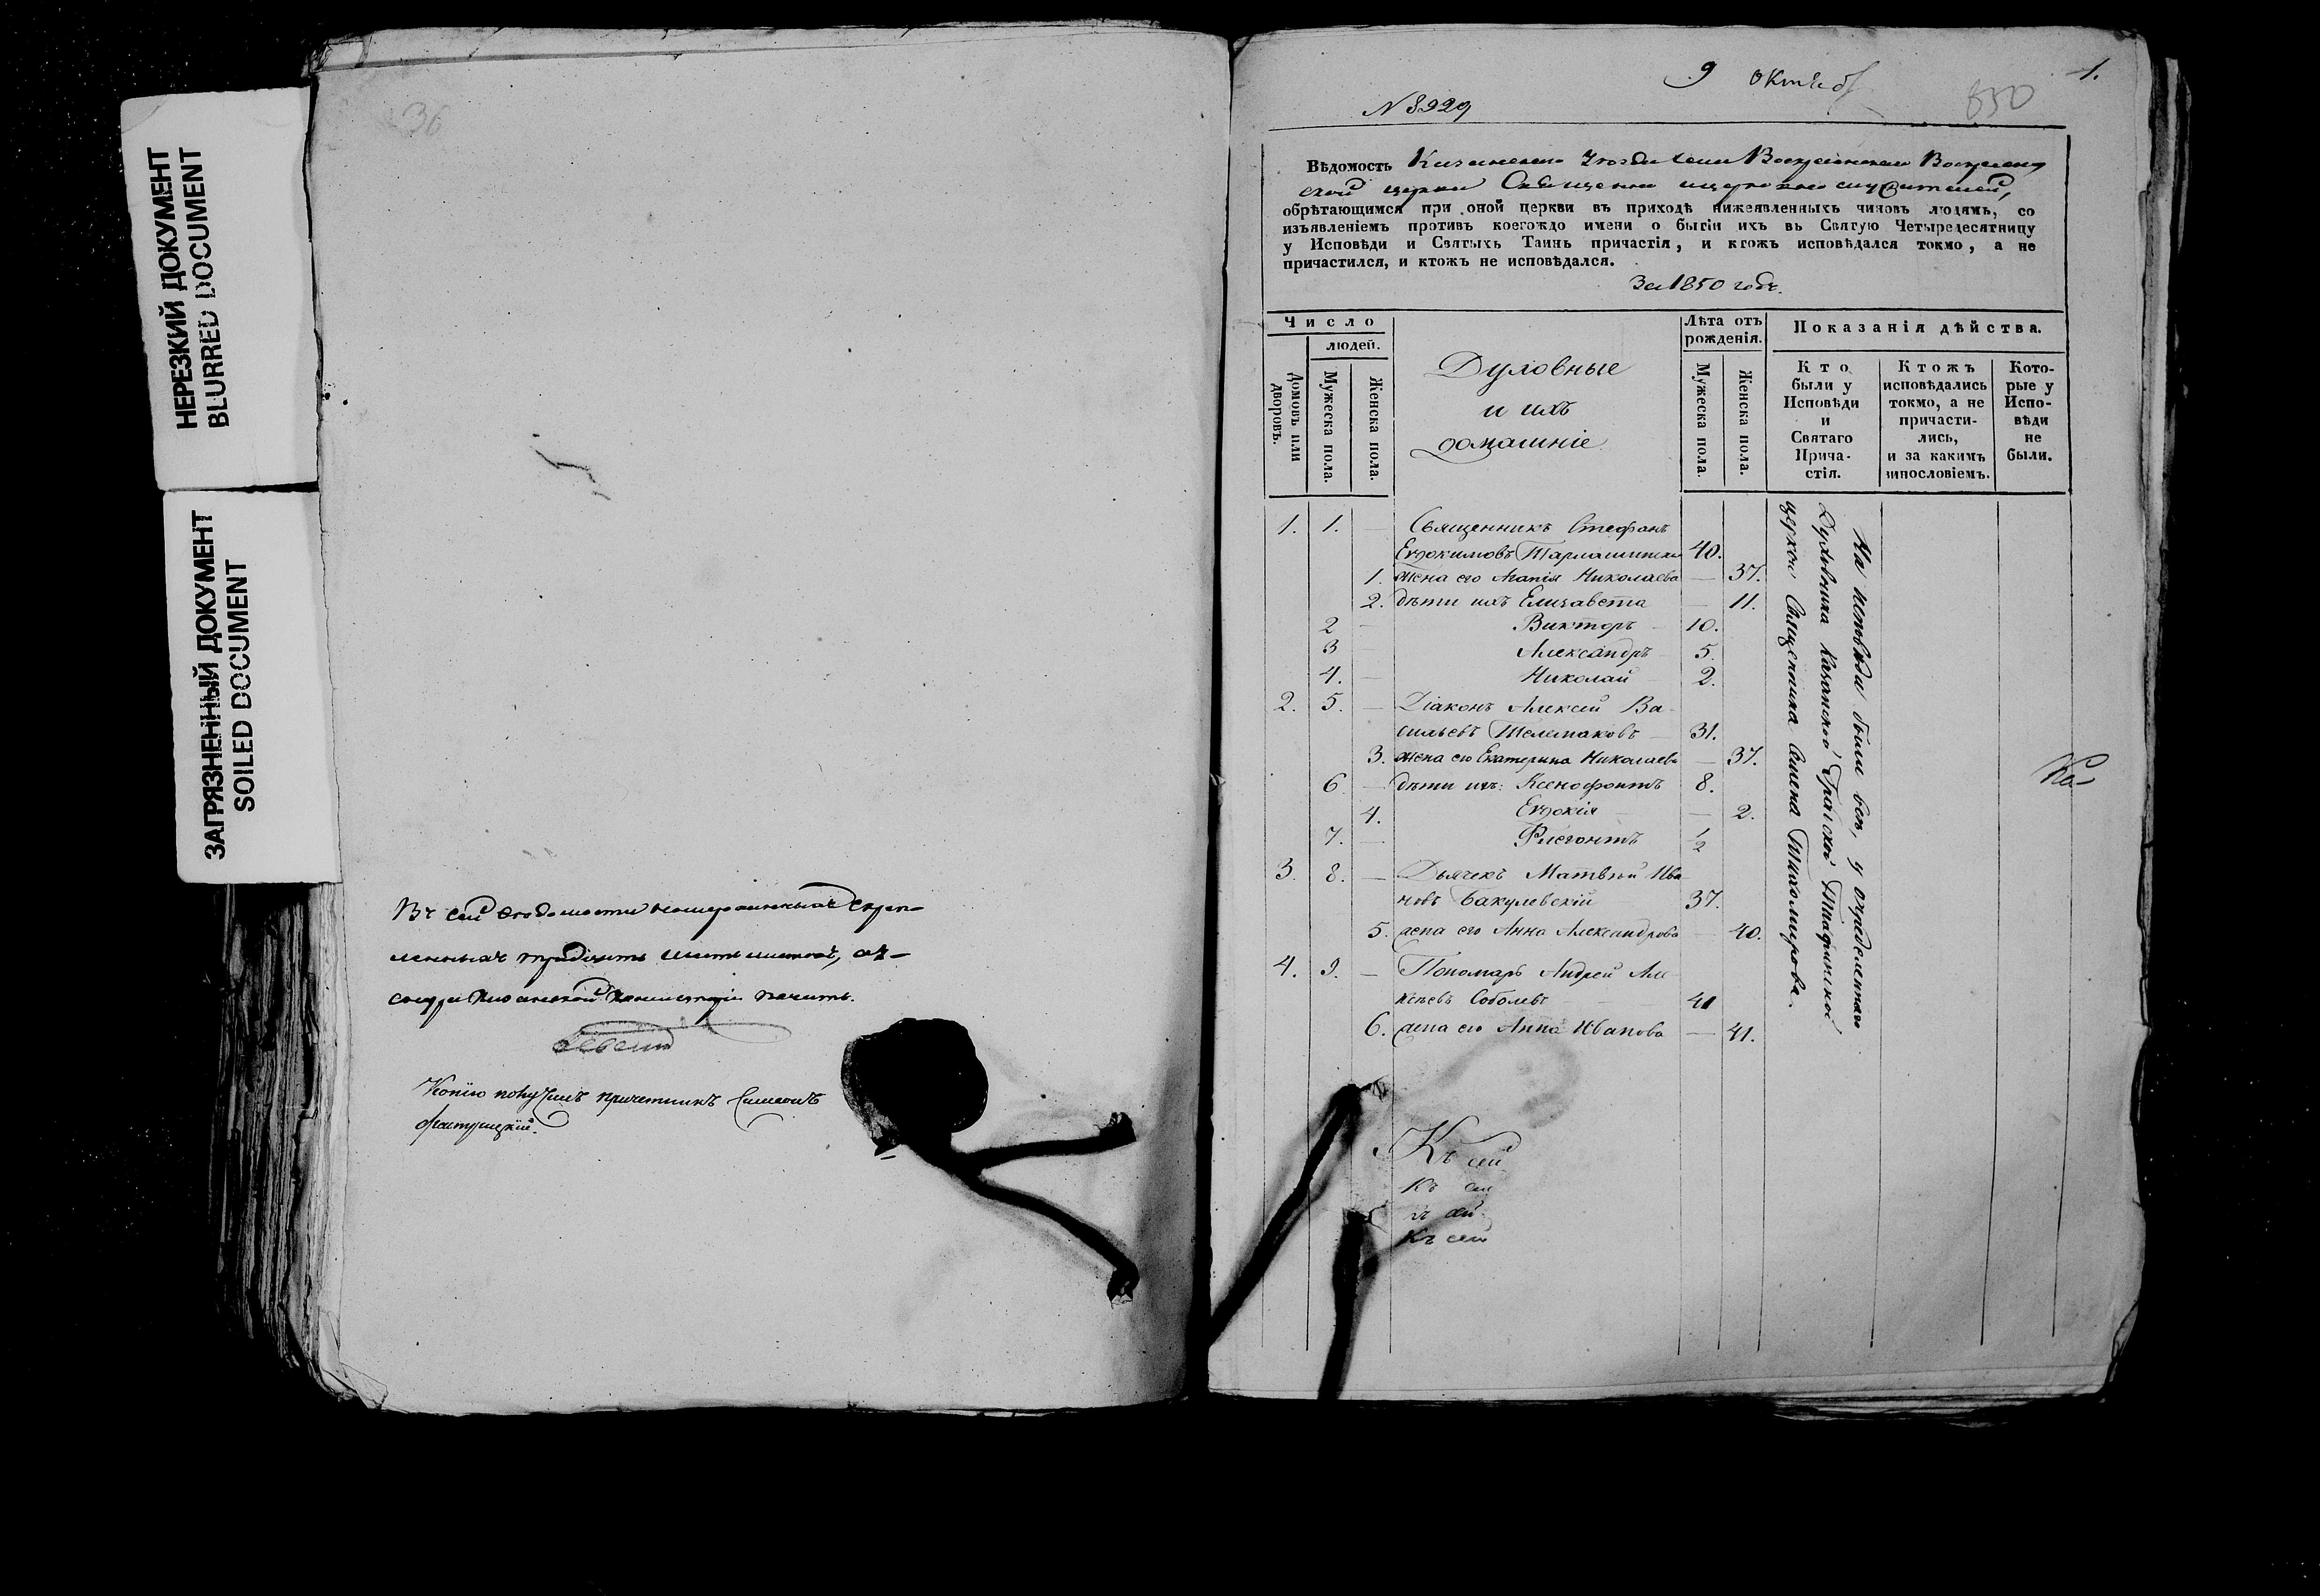 НЕРЕЗКИЙ ДОКУМЕНТ
BLURRED DOCUMENT
ЗАГРЯЗНЕННЫЙ ДОКУМЕНТ
SOILED DOCUMENT
36
Въ сей вѣдомости нумерованныхъ скрѣп-
ленныхъ тридцать шесть листовъ,
Казанской Консисторіи
Копію получилъ причетникъ
9 октяб
1.
N 8929
850
Вѣдомость Казанскаго Уѣзда села Воскресенскаго Воскресен
ской церкви Священно и церковно служителей,
обрѣтающимся при оной церкви въ приходѣ нижеявленныхъ чиновъ людямъ, со
изъявленіемъ противъ коегождо имени о бытіи ихъ въ Святую Четыредесятницу
у Исповѣди и Святыхъ Таинъ причастія, и ктожъ исповѣдался токмо, а не
причастился, и ктожъ не исповѣдался.
За 1850 годъ.
Число
людей.
Домовъ или дворовъ.
Мужеска пола.
Женска пола.
Духовные
и ихъ
домашніе
Лѣта отъ
рожденія.
Мужеска пола.
Женска пола.
Показанія дѣйства.
Кто
были у
Исповѣди
и
Святаго
Прича-
стія.
Ктожъ
исповѣдались
токмо, а не
причасти-
лись,
и за какимъ
винословіемъ.
Кото-
рые у
Испо-
вѣди
не
были.
1. 1. — Священникъ Стефанъ
Евдокимовъ 40.
1. жена его Агапія Николаева — 37.
2. дѣти ихъ Елизавета — 11.
2 — Викторъ — 10.
3 Александръ 5.
4. — Николай 2.
2. 5. — Діаконъ Алексѣй Ва-
сильевъ Телемаковъ — 31.
3. жена его Екатерина Николаева — 37.
6 — дѣти ихъ: Ксенофонтъ 8.
4. Евдокія — 2.
7. — Флегонтъ 1/2
3. 8. — Дьячекъ Матвѣй Ива
новъ Бакулевскій 37.
5. жена его Анна Александрова — 40.
4. 9. — Пономарь Андрей Але
ксѣевъ Соболевъ 41
6. жена его Анна Иванова — 41.
На исповѣди были всѣ, у опредѣленнаго
Духовника Казанской Градской
церкви Священника Тихомирова.
Ка-
Къ сей
Къ сей
къ сей
Къ сей